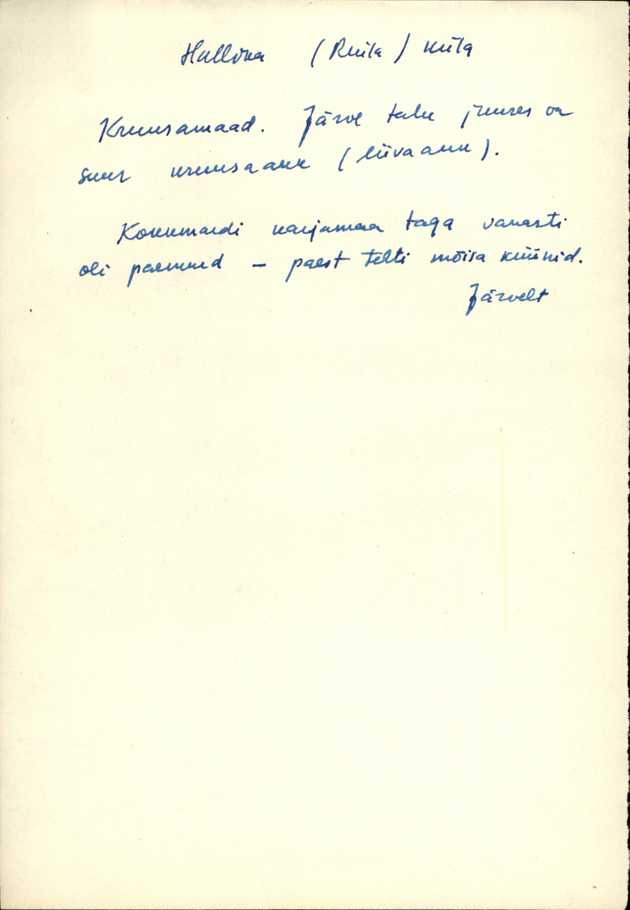 Hullika (Ruila) küla
Kruusamaad. Järve talu juures on
suur kruusaauk (liivaauk).
karjamaa taga vanasti
oli paemurd – paest tehti mõisa küünid.
Järvelt